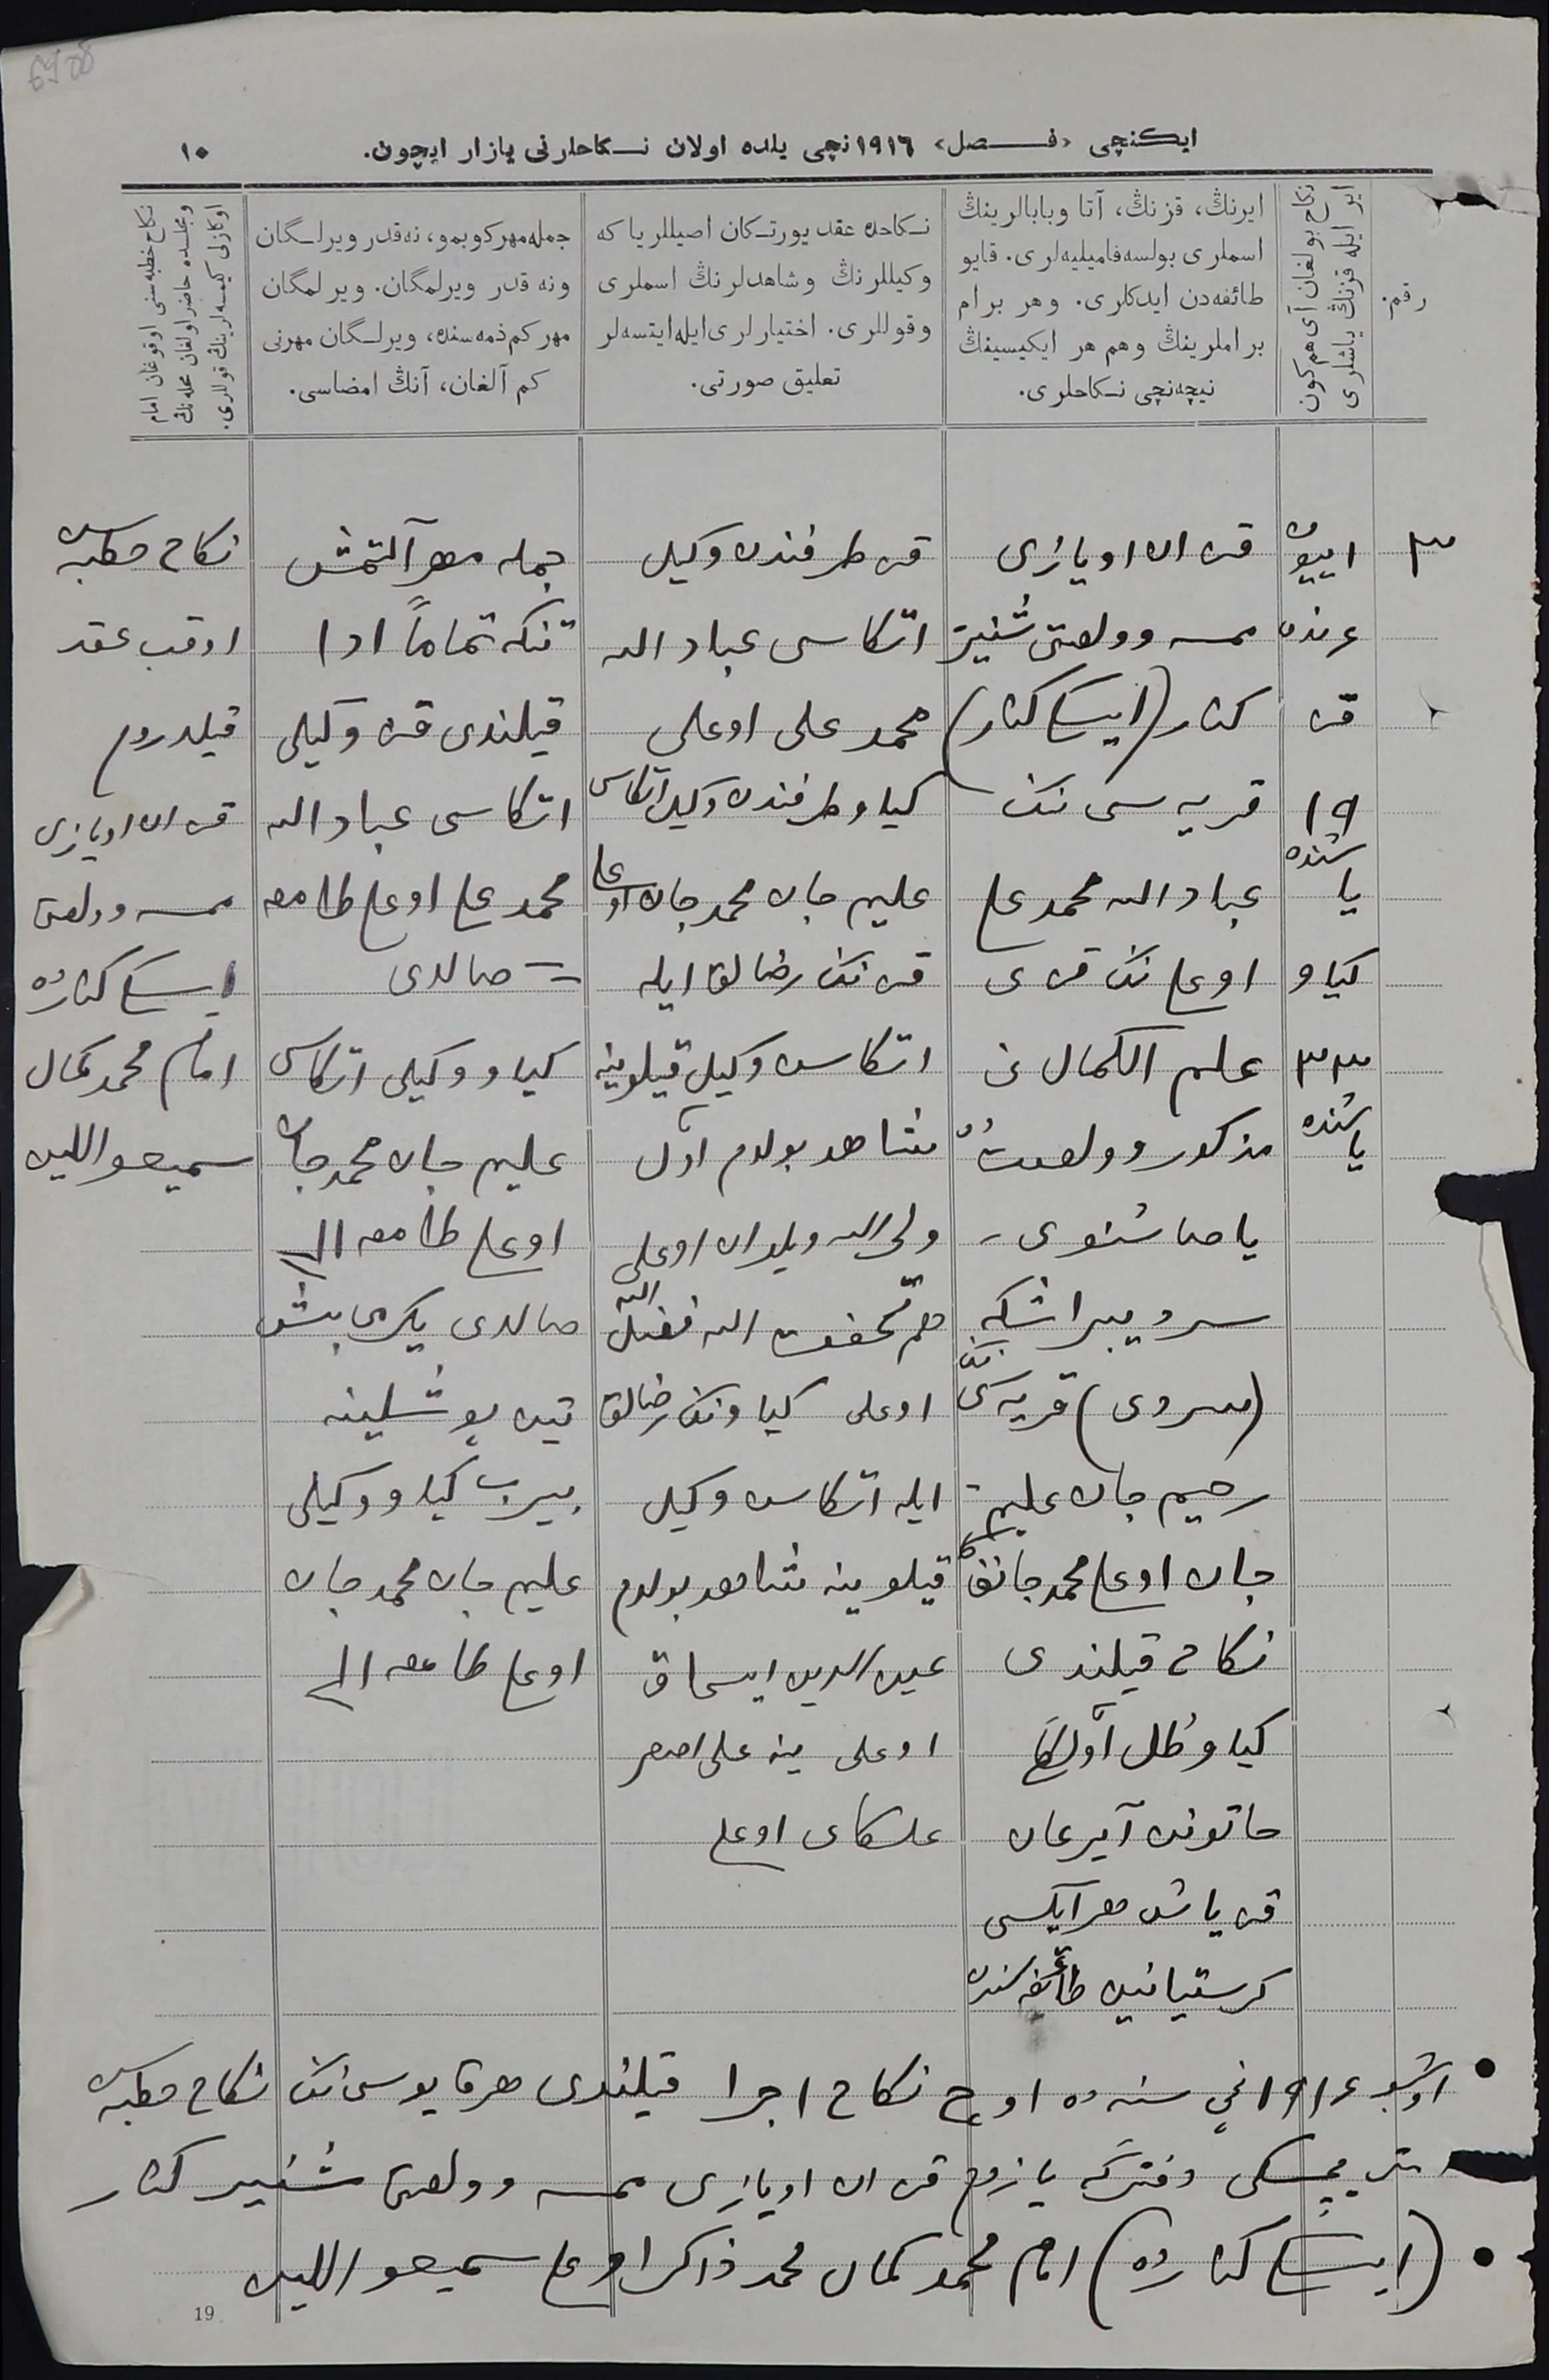 ایکنچی «فصل» ۱۹۱۶نچی یلده اولان نکاحلرنی یازار ایچون. ۱۰
رقم.
نکاح بولغان آی هم کون
ایر ایله قزنڭ یاشلری
ایرنڭ، قزنڭ، آتا وبابالرینڭ
اسملری بولسه فامیلیه‌لری. قایو
طائفه‌دن ایدکلری. وهر برام
براملرینڭ وهم هر ایکیسینڭ
نیچه‌نچی نکاحلری.
نکاحده عقد یورتکان اصیللر یا که
وکیللرنڭ وشاهدلرنڭ اسملری
وقوللری. اختیارلری ایله ایتسه‌لر
تعلیق صورتی.
جمله مهر کوبمو، نه‌قدر ویرلگان
ونه قدر ویرلمگان. ویرلمگان
مهر کم ذمه‌سنده، ویرلگان مهرنی
کم آلغان، آنڭ امضاسی.
نکاح خطبه‌سنی اوقوغان امام
ومجلسده حاضر اولغان محله‌نڭ
اوکازلی کیمسه‌لرینڭ قوللری.
۳
اییون
عنده
قز
۱۹
یاشنده
کیاو
۳۳
یاشنده
قزان اویازی
ممسه وولصتی شنیر
کنار (ایسکی کنار)
قریه سی ننک
عباد الله محمد علی
اوغلی ننک قزی
علم الکمال نی
مذکور وولصت
یاصاشنوی -
سردیبراشکه
(سردی) قریه سی ننک
رحیم جان علیم
جان اوغلی محمد جانغه
نکاح قیلندی
کیاو طل اولکی
خاتوندن آیرغان
قز یاش هر ایکسی
کرستیانین طائفه سندن
قز طرفندن وکیل
اتکاسی عباد الله
محمد علی اوغلی
کیاو طرفندن وکیل اتکاسی
علیم جان محمد جان اوغلی
قز ننک رضالق ایله
اتکاسن وکیل قیلوینه
شاهد بولدم اول
ولی الله ویلدان اوغلی
هم تحفت الله فضل الله
اوغلی کیاوننک رضالق
ایله اتکاسن وکیل
قیلوینه شاهد بولدم
عین الدین ایسحاق
اوغلی ینه علی اصغر
علسکای اوغلی
جمله مهر آلتمش
تنکه تماماً ادا
قیلندی قز وکیلی
اتکاسی عباد الله
محمد علی اوغلی طامغه
صالدی
کیاو وکیلی اتکاسی
علیم جان محمد جان
اوغلی طامغه
صالدی یکرمی بش
تین پوشلینه
بیرب کیاو وکیلی
علیم جان محمد جان
اوغلی طامغه
نکاح خطبه سن
اوقب عقد
قیلدردم
قزان اویازی
ممسه وولصتی
ایسکی کنارده
امام محمد کمال
سمیعواللین
اوشبو ۱۹۱۶ نچی سنه ده اوچ نکاح اجرا قیلندی هر قایوسی ننک نکاح خطبه سن
دفترکه یازدم قزان اویازی ممسه وولصتی شنیر کنار
(ایسکی کنارده) امام محمد کمال محمد ذاکر اوغلی سمیعواللین
19